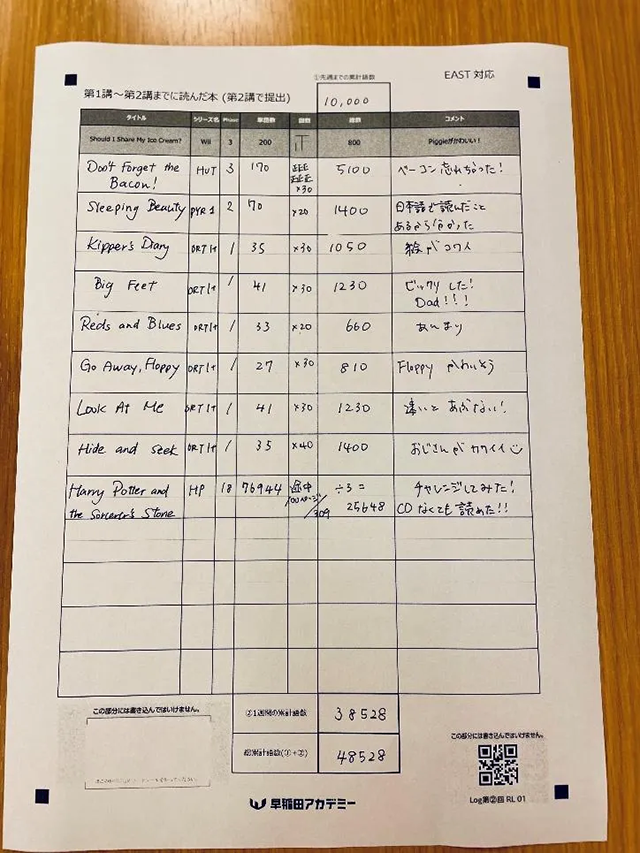 ①先週までの累計語数
EAST 対応
第1講～第2講までに読んだ本 (第2講で提出)
10,000
タイトル シリーズ名 Phase 単語数 回数 総数 コメント
Should I Share My Ice Cream? Wii 3 200 正 800 Piggieがかわいい！
Don't Forget the Bacon! HUT 3 170 正正正正正正 ×30 5100 ベーコン忘れちゃった！
Sleeping Beauty PYR 1 2 70 ×20 1400 日本語で読んだこと
あるから
Kipper's Diary ORT 1+ 1 35 ×30 1050 絵がコワイ
Big Feet ORT 1+ 1 41 ×30 1230 ビックリした！
Dad!!!
Reds and Blues ORT 1+ 1 33 ×20 660 あんまり
Go Away, Floppy ORT 1+ 1 27 ×30 810 Floppy かわいそう
Look At Me ORT 1+ 1 41 ×30 1230 遠いとあぶない！
Hide and Seek ORT 1+ 1 35 ×40 1400 おじさんがカワイイ
Harry Potter and HP 18 76944 途中 ÷3= チャレンジしてみた！
the Sorcerer's Stone 100ページ/309 25648 CDなくても読めた!!
この部分には書き込んではいけません。
②1週間の累計語数 38528
総累計語数(①+②) 48528
この部分には書き込んではいけません。
早稲田アカデミー
Log第②回 RL 01